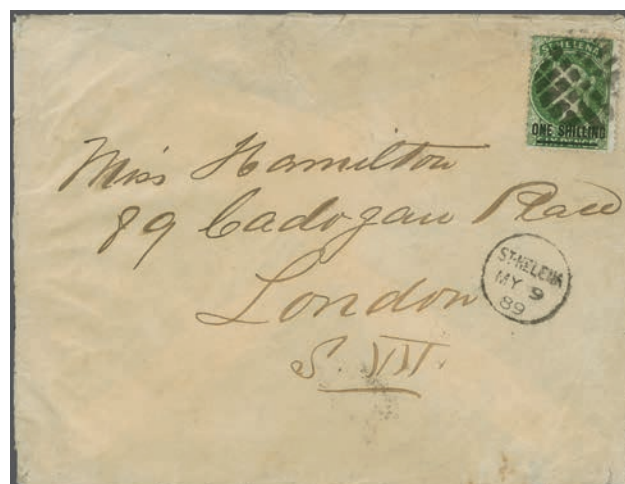 ST. HELENA
ONE SHILLING
Miss Hamilton
89 Cadogan Place
London
S. W.
ST. HELENA
MY 9
89